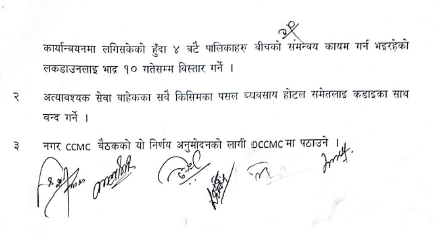 कार्यान्वयनमा लगिसकेको हुँदा ४ वटै पालिकाहरु बीचको समन्वय कायम गर्न भइरहेको
लकडाउनलाइ भाद्र १० गतेसम्म विस्तार गर्ने ।
२ अत्यावश्यक सेवा वाहेकका सवै किसिमका पसल व्यवसाय होटल समेतलाइ कडाइका साथ
बन्द गर्ने ।
३ नगर CCMC बैठकको यो निर्णय अनुमोदनको लागी DCCMC मा पठाउने ।